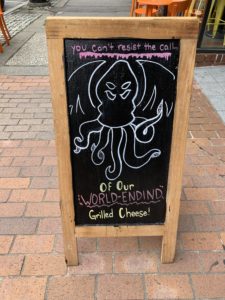 you can't resist the call...
Of Our
WORLD-ENDIND
Grilled Cheese!